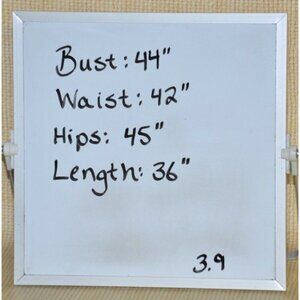 Bust: 44"
Waist: 42"
Hips: 45"
Length: 36"
3.9